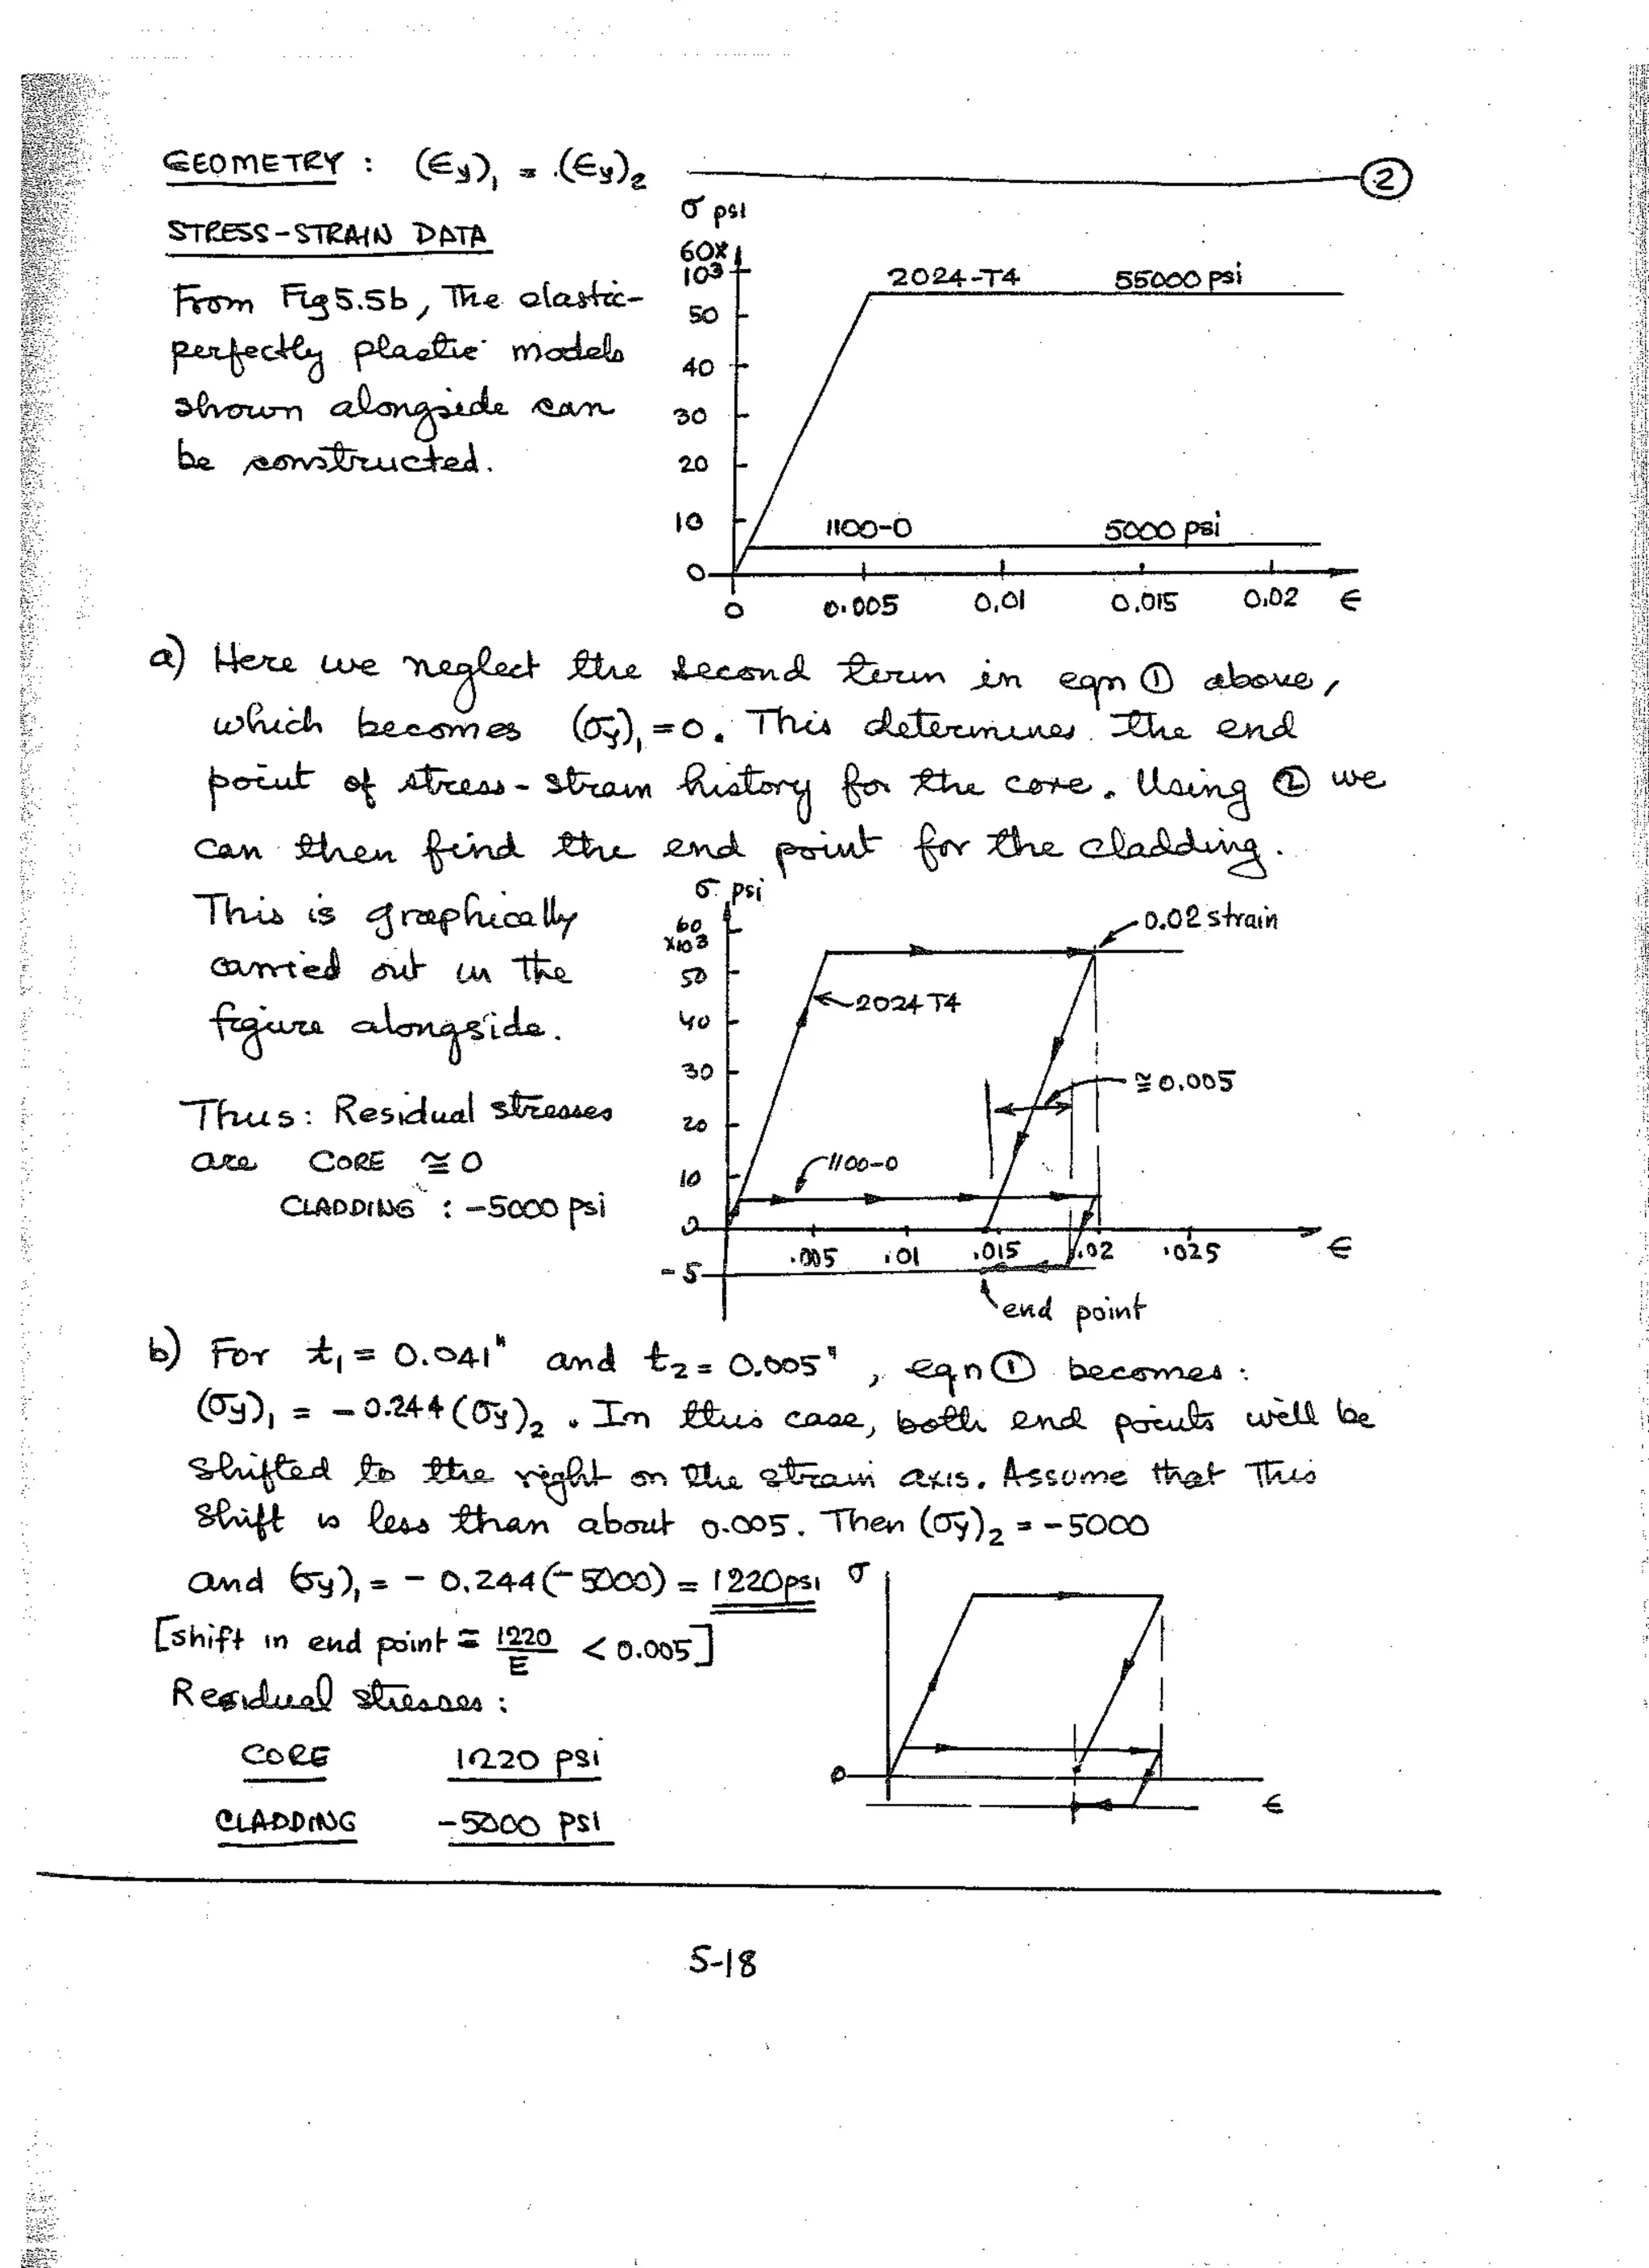 GEOMETRY : (ϵy)₁ = (ϵy)₂ ②
STRESS-STRAIN DATA
From Fig 5.5b, The elastic-
perfectly plastic models
shown alongside can
be constructed.
σ psi
60x
10³
50
40
30
20
10
0
2024-T4 55000 psi
1100-0 5000 psi
0 0.005 0.01 0.015 0.02 ϵ
a) Here we neglect the second term in eqn ① above,
which becomes (σy)₁ = 0. This determines the end
point of stress-strain history for the core. Using ② we
can then find the end point for the cladding.
This is graphically
carried out in the
figure alongside.
Thus: Residual stresses
are CORE ≅ 0
CLADDING : -5000 psi
σ psi
60
x10³
50
40
30
20
10
0
-5
0.02 strain
2024 T4
≅ 0.005
1100-0
.005 .01 .015 .02 .025 ϵ
end point
b) For t₁ = 0.041" and t₂ = 0.005", eqn ① becomes :
(σy)₁ = -0.244 (σy)₂. In this case, both end points will be
shifted to the right on the strain axis. Assume that This
shift is less than about 0.005. Then (σy)₂ = -5000
and (σy)₁ = - 0.244(-5000) = 1220psi
[shift in end point ≅ 1220/E < 0.005]
Residual stresses :
CORE 1220 psi
CLADDING -5000 psi
σ
0
ϵ
5-18